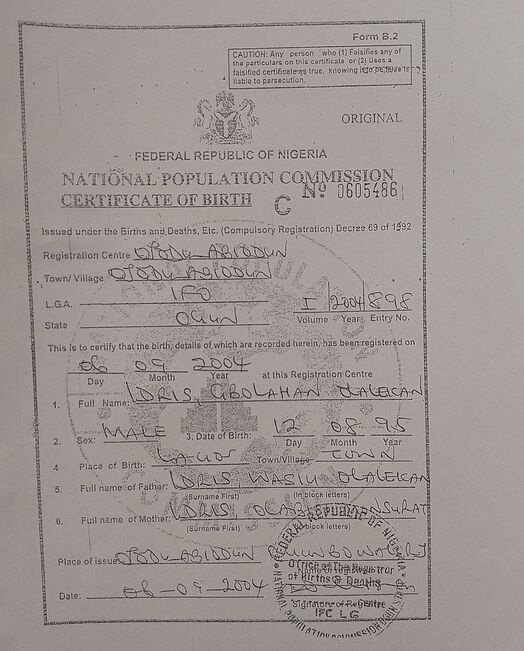 Form B.2
CAUTION: Any person who (1) Falsifies any of
the particulars on this certificate or (2) Uses a
falsified certificate as true, knowing it to be false is
liable to persecution.
ORIGINAL
FEDERAL REPUBLIC OF NIGERIA
NATIONAL POPULATION COMMISSION
CERTIFICATE OF BIRTH C No 0605486
Issued under the Births and Deaths, Etc. (Compulsory Registration) Decree 69 of 1992
Registration Centre OJODU ABIODUN
Town/Village OJODU ABIODUN
L.G.A. IFO
State OGUN
I 2004 898
Volume Year Entry No.
This is to certify that the birth, details of which are recorded herein, has been registered on
06 09 2004
Day Month Year at this Registration Centre
1. Full Name: IDRIS, GBOLAHAN OLALEKAN
2. Sex: MALE 3. Date of Birth: 12 08 95
Day Month Year
4 Place of Birth: Town/Village TOWN
5. Full name of Father: IDRIS WASIU OLALEKAN
(Surname First) (In block letters)
6. Full name of Mother: IDRIS NSURAT
(Surname First) (In block letters)
Place of issue OJODU ABIODUN
Date: 06-09-2004
FEDERAL REPUBLIC OF NIGERIA
Office of The Registrar
of Births & Deaths
Signature of Registrar
IFO LG
NATIONAL POPULATION COMMISSION